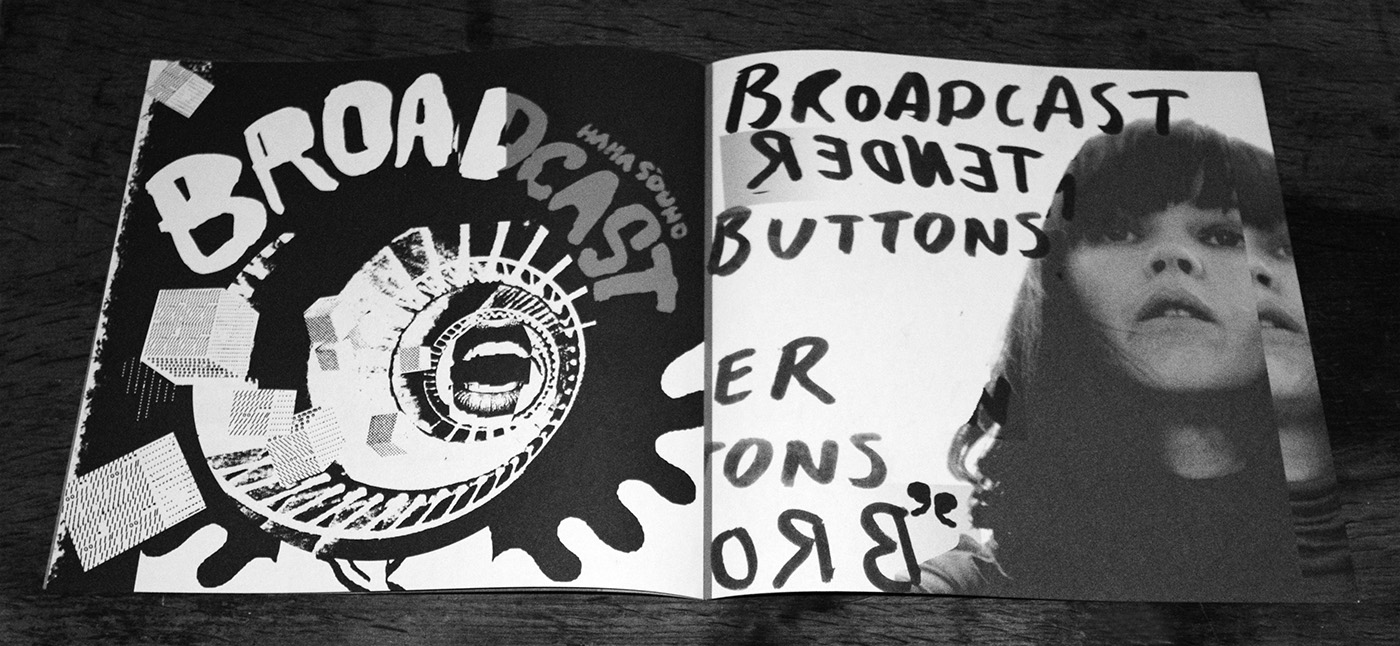 BROADCAST
HAHA SOUND
BROADCAST
TENDER
BUTTONS
ER
TONS
BRO